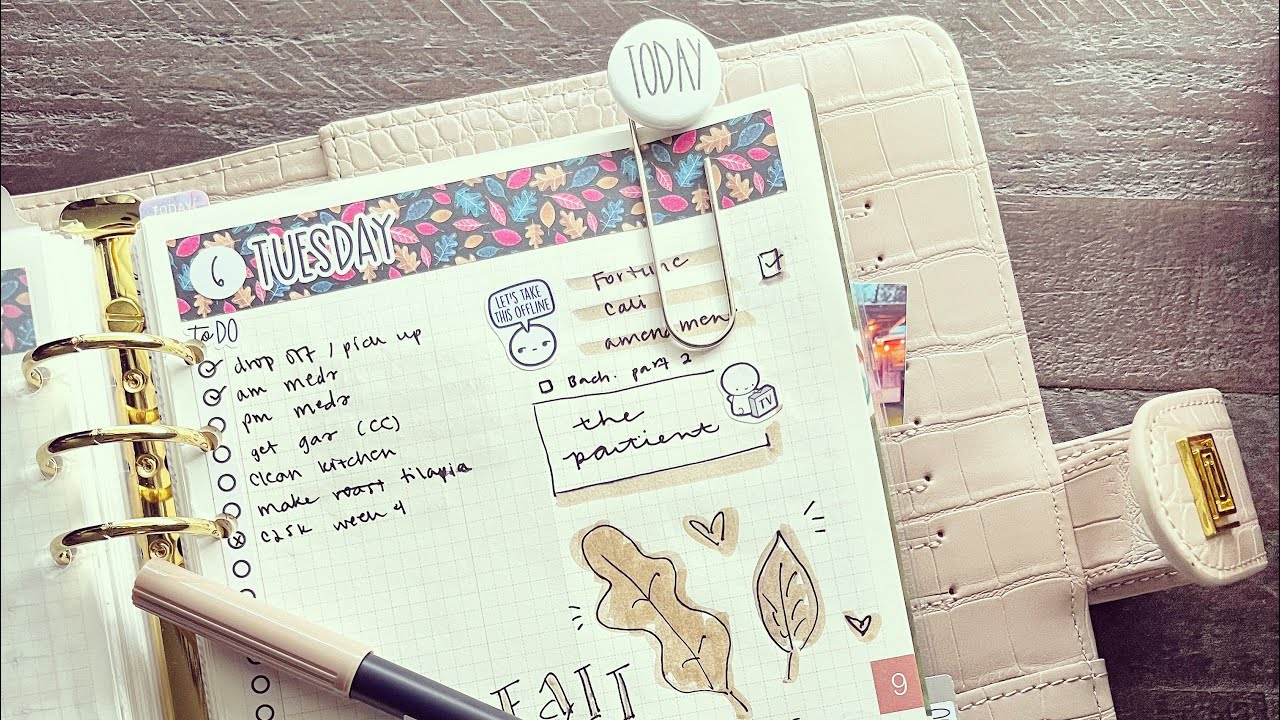 TODAY
TODAY
6 TUESDAY
to DO
drop off / pick up
am meds
pm meds
get gas (CC)
clean kitchen
make roast tilapia
c25k week 4
LET'S TAKE
THIS OFFLINE
Fortune
cali
amendmen
Bach. part 2
the
patient
TV
FALL
9